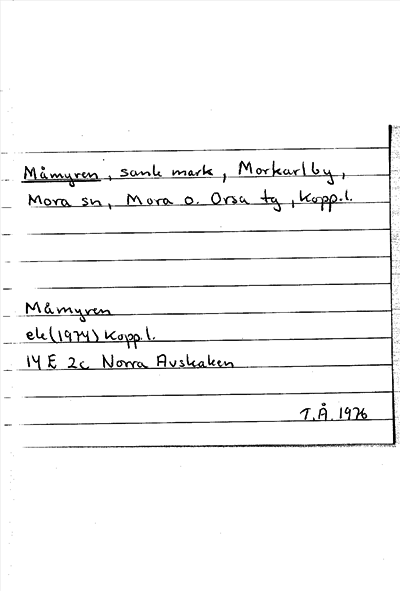 Måmyren, sank mark, Morkarlby,
Mora sn, Mora o. Orsa tg, Kopp.l.
Måmyren
ek (1974) Kopp.l.
14 E 2c Norra Avskaken
T.Å. 1976